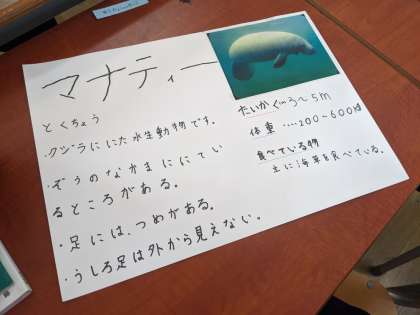 マナティー
とくちょう
・クジラににた水生動物です。
・ぞうのなかまににてい
るところがある。
・足には、つめがある。
・うしろ足は外から見えない。
たいかく…3～5m
体重……200～600㎏
食べている物
主に海草を食べている。